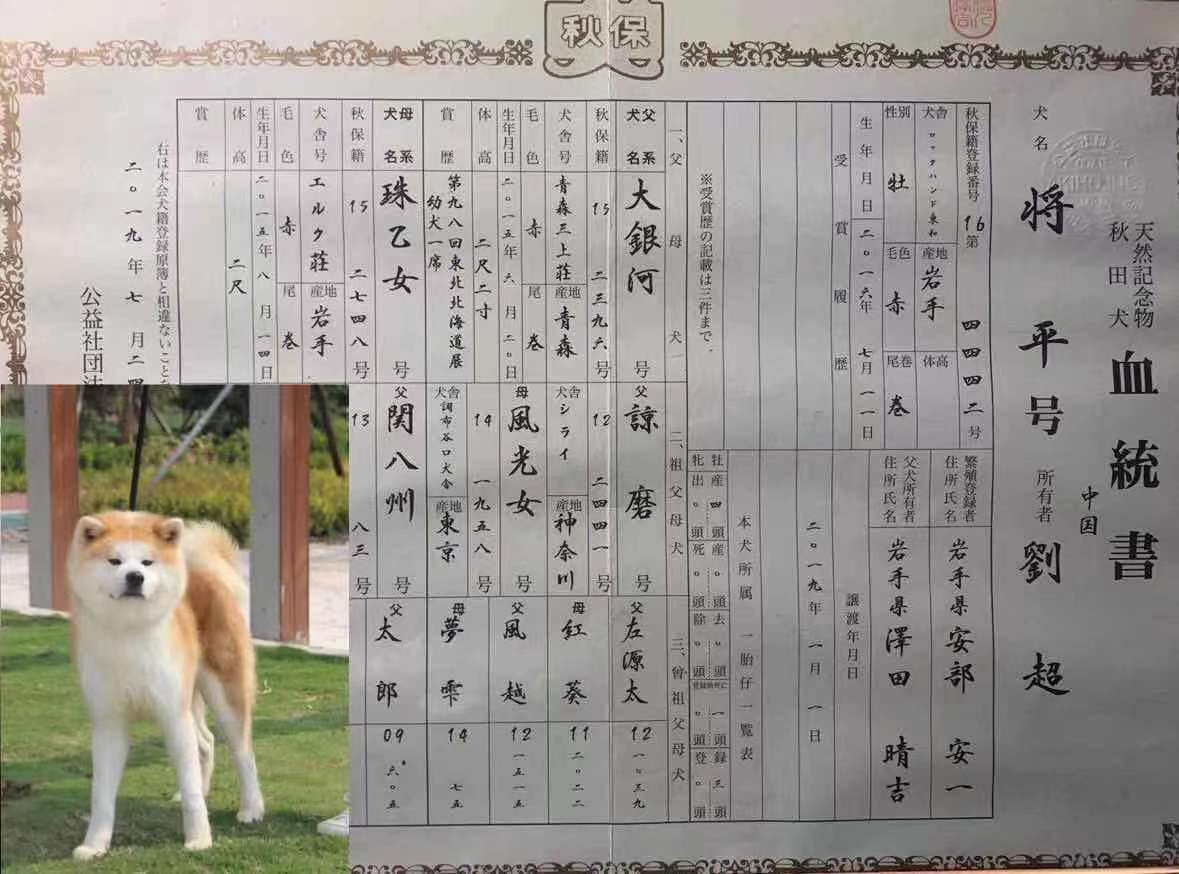 秋保
天然記念物
秋田犬
血統書
中国
犬名 将平号 所有者 劉超
秋保籍登録番号 16第 四四四二号
犬舎 ロックハンド東和 産地 岩手 体高
性別 牡 毛色 赤 尾巻 巻
生年月日 二〇一六年 七月一一日
受賞履歴
※受賞歴の記載は三件まで.
繁殖登録者住所氏名 岩手県 安部安一
父犬所有者住所氏名 岩手県 澤田晴吉
譲渡年月日
二〇一九年 一月一日
本犬所属一胎仔一覧表
牡産 四頭 産 〃頭 去 〃頭 一頭 録 三頭
牝出 〇頭 死 〇頭 除 〇頭 〇頭 登 〇頭
一、父母犬
父系犬名 大銀河号
秋保籍 15 二三九六号
犬舎号 青森三上荘 産地 青森
毛色 赤 尾 巻
生年月日 二〇一五年 六月二〇日
体高 二尺二寸
賞歴 第九八回東北北海道展
幼犬一席
母系犬名 珠乙女号
秋保籍 15 二七四八号
犬舎号 エルク荘 産地 岩手
毛色 赤 尾 巻
生年月日 二〇一五年 八月一四日
体高 二尺
賞歴
二、祖父母犬
父 諒磨号
12 二四四一号
犬舎 シライ 産地 神奈川
母 風光女号
14 一九五八号
犬舎 調布谷口犬舎 産地 東京
父 関八州号
13 八三号
三、曾祖父母犬
父 左源太
12 一〇三九
母 紅葵
11 二〇二二
父 風越
12 一五一五
母 夢雫
14 七五
父 太郎
09 六〇五
右は本会犬籍登録原簿と相違ないことを
二〇一九年七月二四
公益社団法